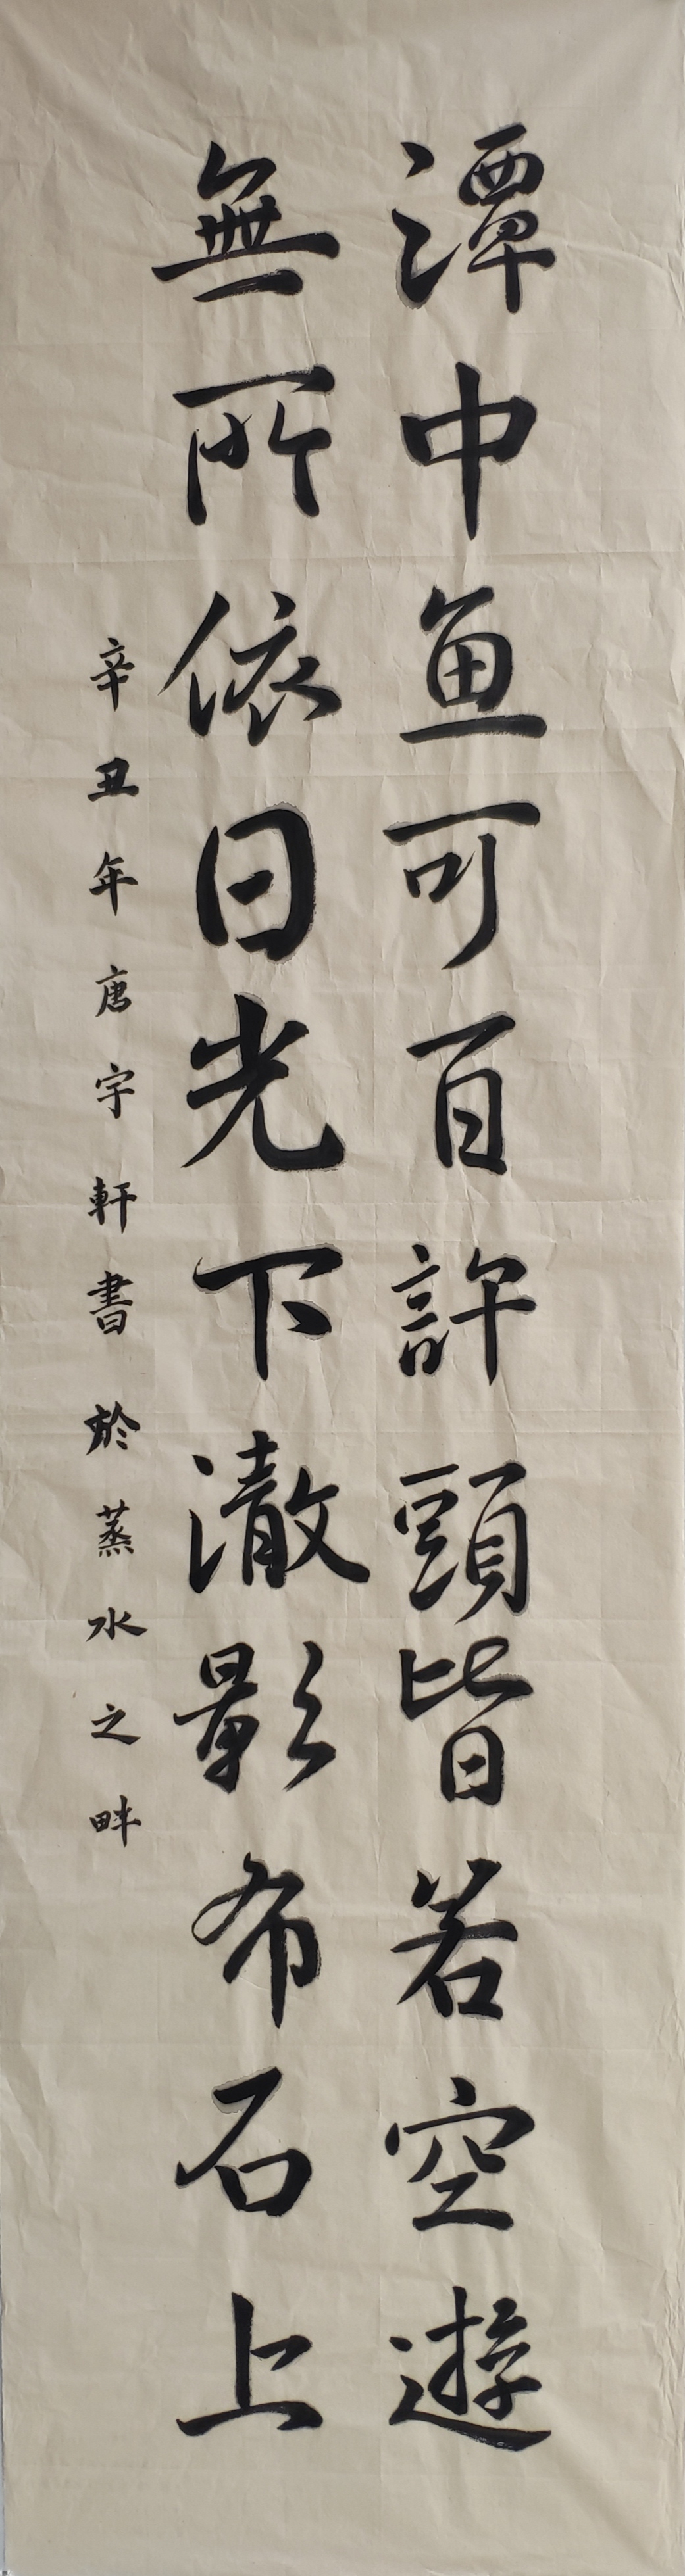 潭中魚可百許頭皆若空遊
無所依日光下澈影布石上
辛丑年唐宇軒書於蒸水之畔